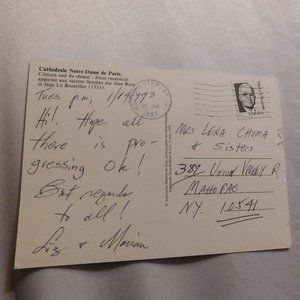 Cathédrale Notre-Dame de Paris.
Clôture sud du chœur : Jésus ressuscité
apparaît aux saintes femmes par Jean Ravy
et Jean Le Bouteiller (1351).
Tues. p.m,
Hi! Hope all
there is pro-
gressing OK!
Best regards
to all!
Liz & Marian
1993
TRUMAN
Mrs Lena Choma
& Sisters
382 Union Valley R
Mahopac
NY. 10541